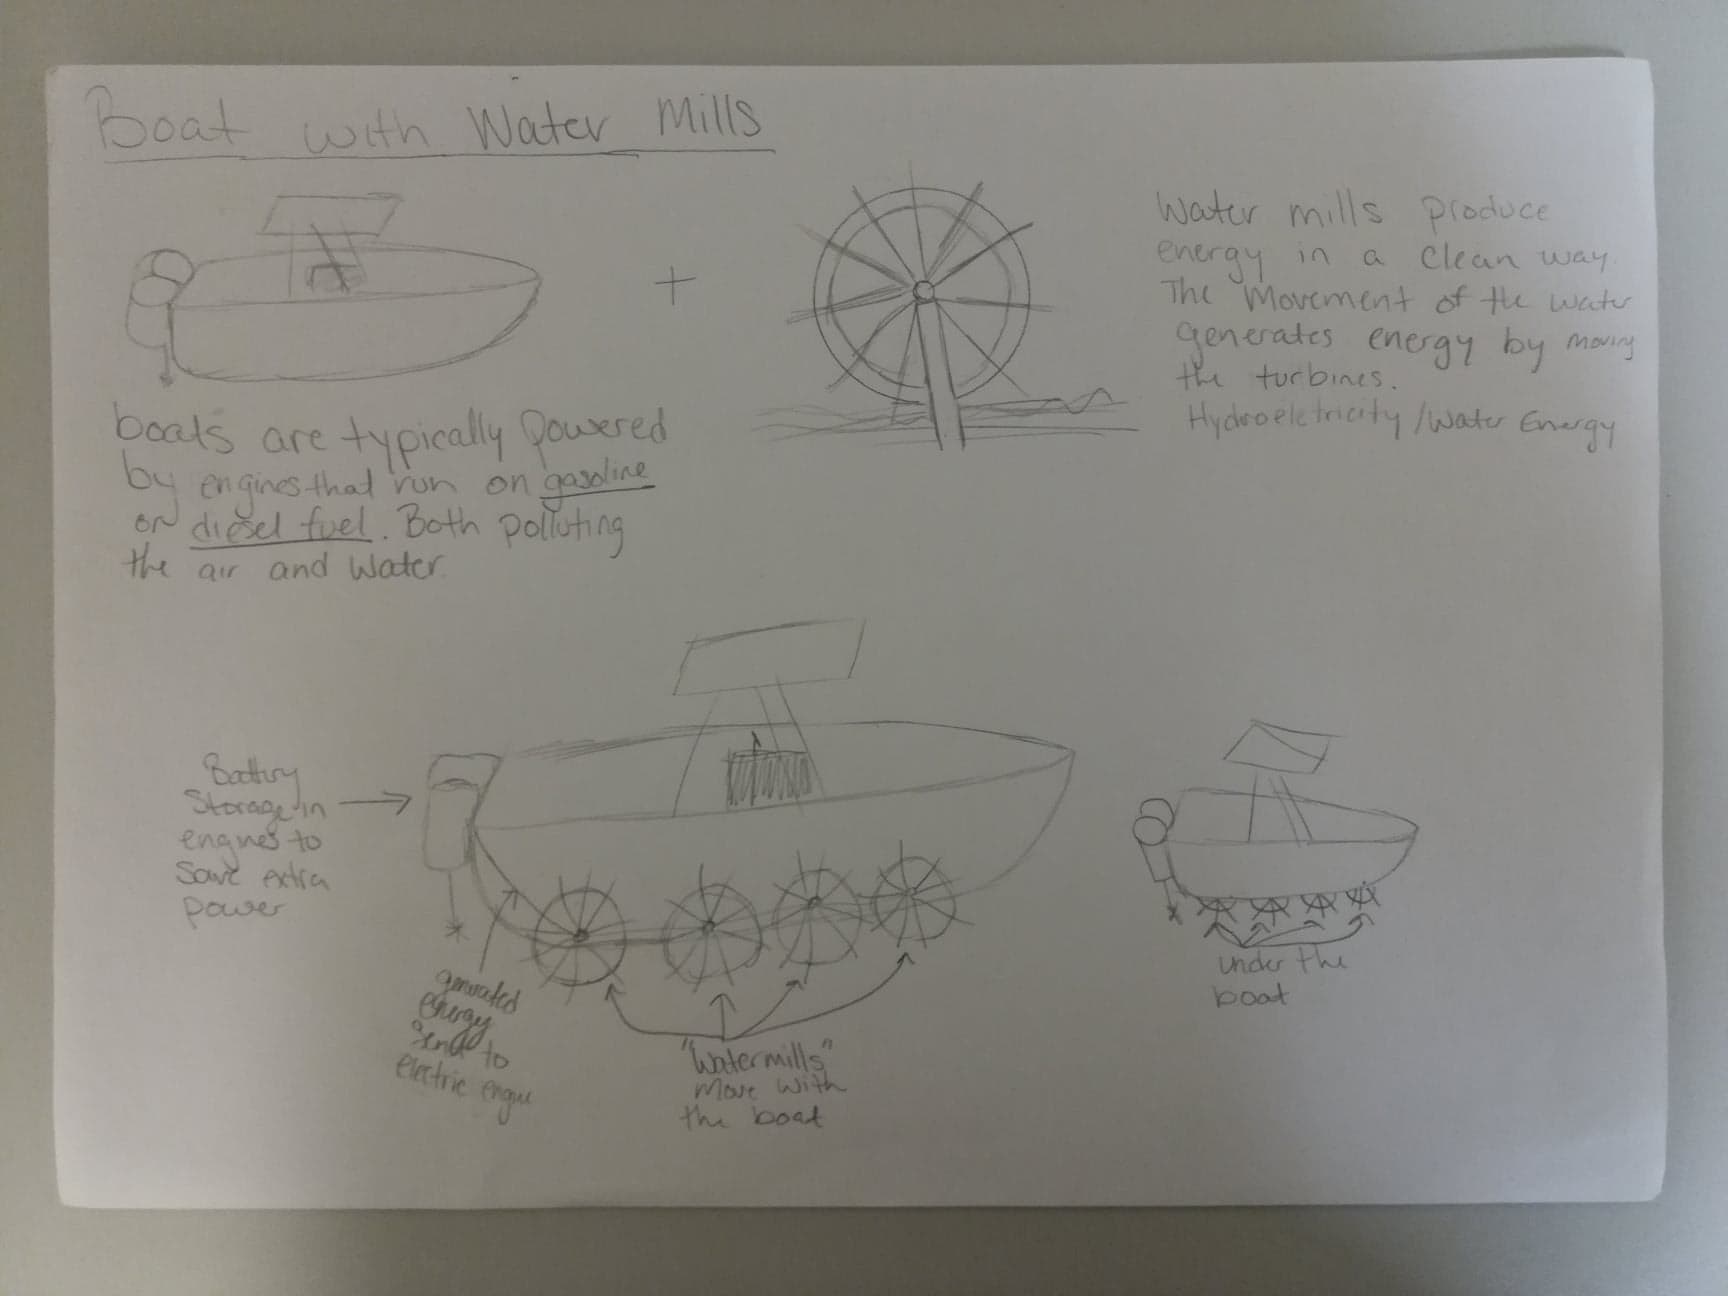 Boat with Water Mills
+
boats are typically powered
by engines that run on gasoline
or diesel fuel. Both polluting
the air and water.
Water mills produce
energy in a clean way.
The movement of the water
generates energy by moving
the turbines.
Hydroeletricity / Water Energy
Battery
Storage in
engines to
save extra
power
generated
energy
send to
electric engine
"Watermills"
move with
the boat
under the
boat